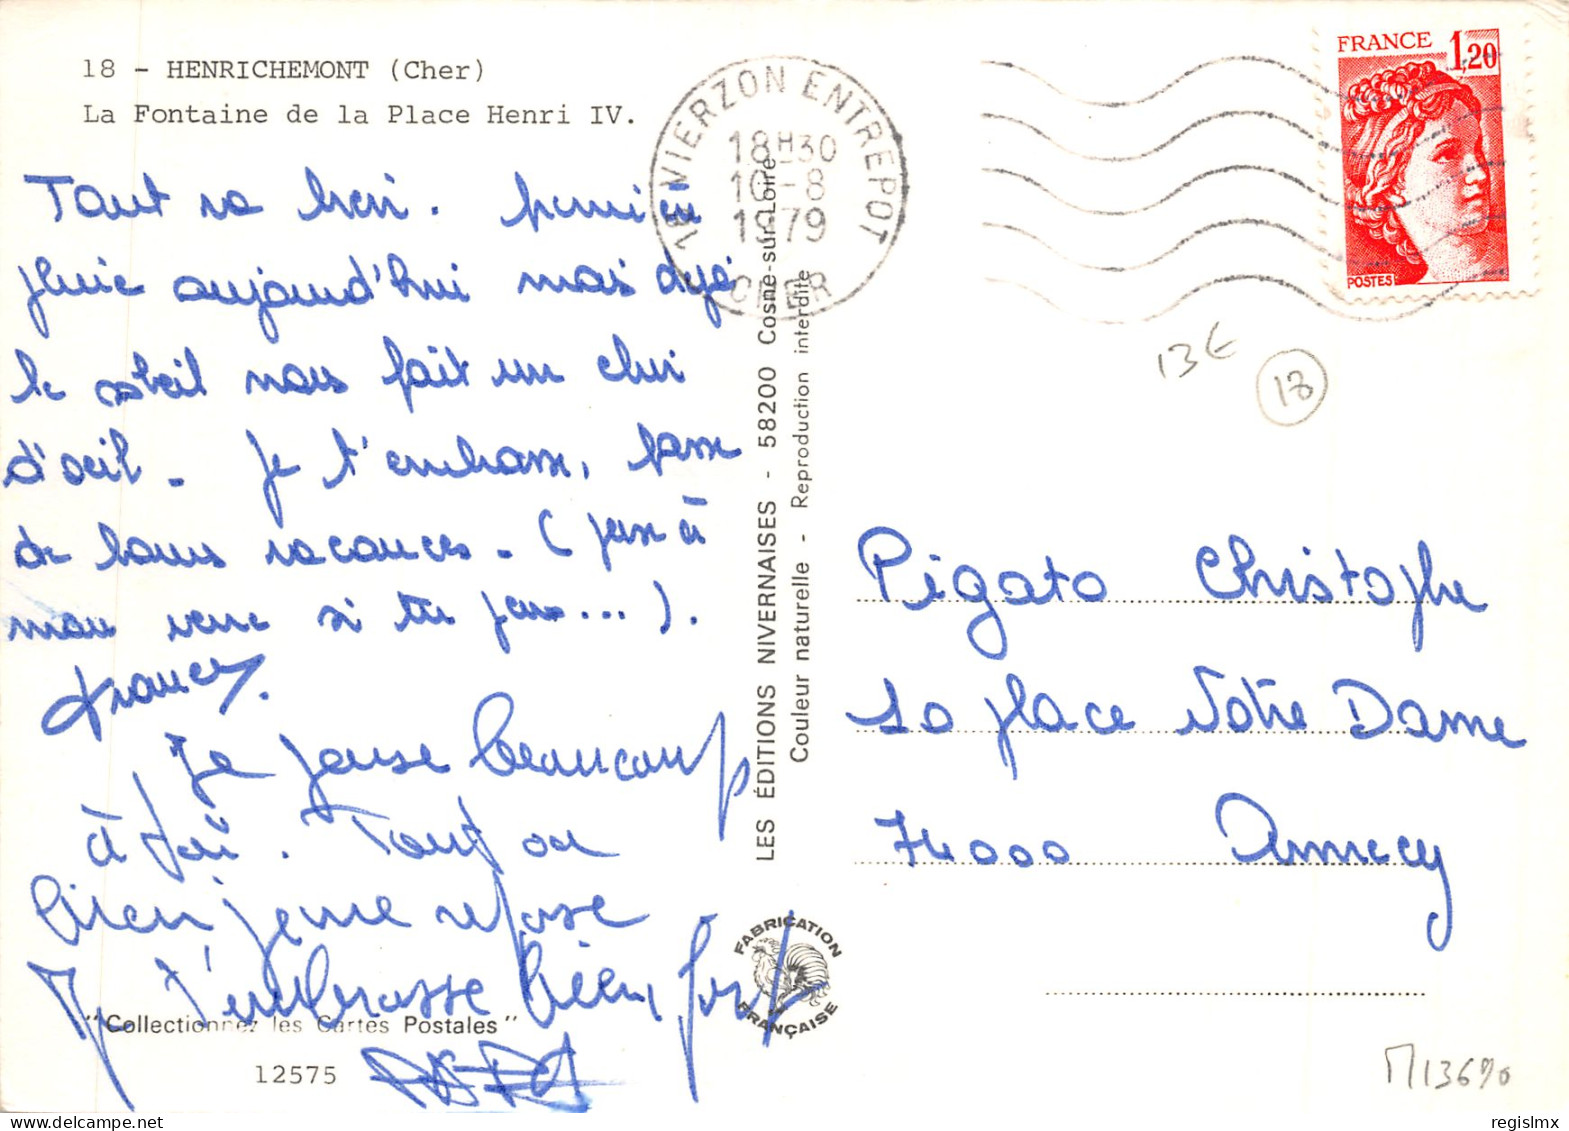 18 - HENRICHEMONT (Cher)
La Fontaine de la Place Henri IV.
Tout va bien. Première
pluie aujourd'hui mais déjà
le soleil nous fait un clin
d'oeil. Je t'embrasse, passe
de bonnes vacances. (pense à
mon verre si tu peux...).
Francy.
Je pense beaucoup
à toi. Tout va
bien je me repose
Je t'embrasse bien fort
"Collectionnez les Cartes Postales"
12575
18 VIERZON ENTREPOT
18H30
10-8
1979
CHER
FRANCE 1,20
POSTES
LES ÉDITIONS NIVERNAISES - 58200 Cosne-sur-Loire
Couleur naturelle - Reproduction interdite
FABRICATION
FRANÇAISE
13€
18
Pigato Christophe
10 place Notre Dame
74000 Annecy
M13690
regislmx